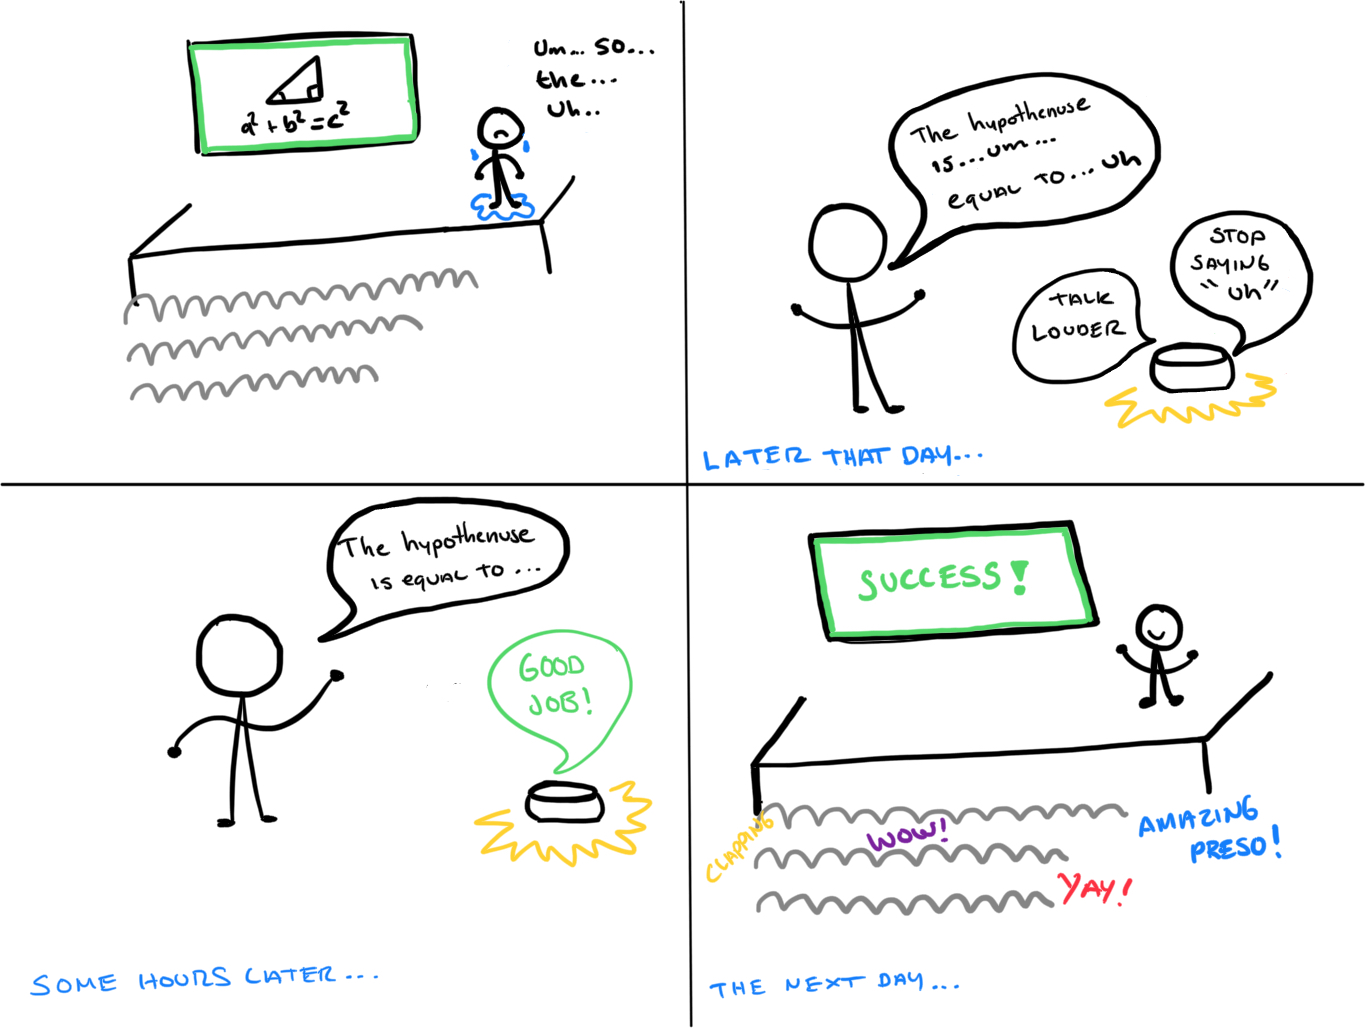 a² + b² = c²
Um... so...
the...
uh..
The hypothenuse
is...um...
equal to... uh
TALK
LOUDER
STOP
SAYING
"uh"
LATER THAT DAY...
The hypothenuse
is equal to...
GOOD
JOB!
SOME HOURS LATER...
SUCCESS!
CLAPPING
WOW!
AMAZING
PRESO!
YAY!
THE NEXT DAY...